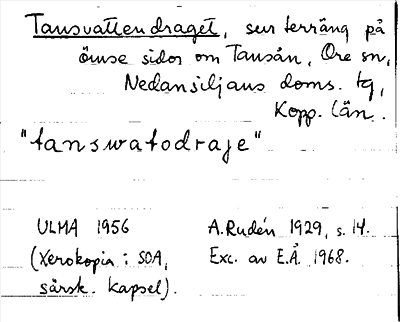 Tansvattendraget, sur terräng på
ömse sidor om Tansån, Ore sn,
Nedansiljans doms. tg,
Kopp. län.
"tanswatodraje"
ULMA 1956 A. Rudén 1929, s. 14.
(Xerokopia i SOA, Exc. av E.Å. 1968.
särsk. kapsel).